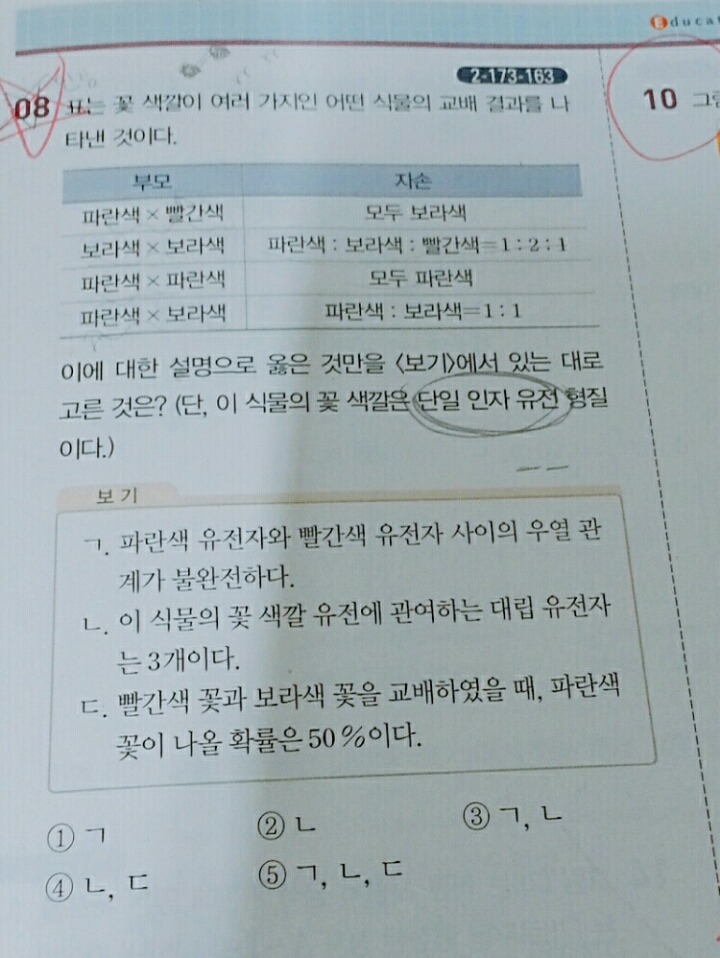 Educa
2-173-163
08 표는 꽃 색깔이 여러 가지인 어떤 식물의 교배 결과를 나
타낸 것이다.
부모 자손
파란색 × 빨간색 모두 보라색
보라색 × 보라색 파란색 : 보라색 : 빨간색=1 : 2 : 1
파란색 × 파란색 모두 파란색
파란색 × 보라색 파란색 : 보라색=1 : 1
이에 대한 설명으로 옳은 것만을 <보기>에서 있는 대로
고른 것은? (단, 이 식물의 꽃 색깔은 단일 인자 유전 형질
이다.)
보기
ㄱ. 파란색 유전자와 빨간색 유전자 사이의 우열 관
계가 불완전하다.
ㄴ. 이 식물의 꽃 색깔 유전에 관여하는 대립 유전자
는 3개이다.
ㄷ. 빨간색 꽃과 보라색 꽃을 교배하였을 때, 파란색
꽃이 나올 확률은 50 %이다.
① ㄱ ② ㄴ ③ ㄱ, ㄴ
④ ㄴ, ㄷ ⑤ ㄱ, ㄴ, ㄷ
10 그림